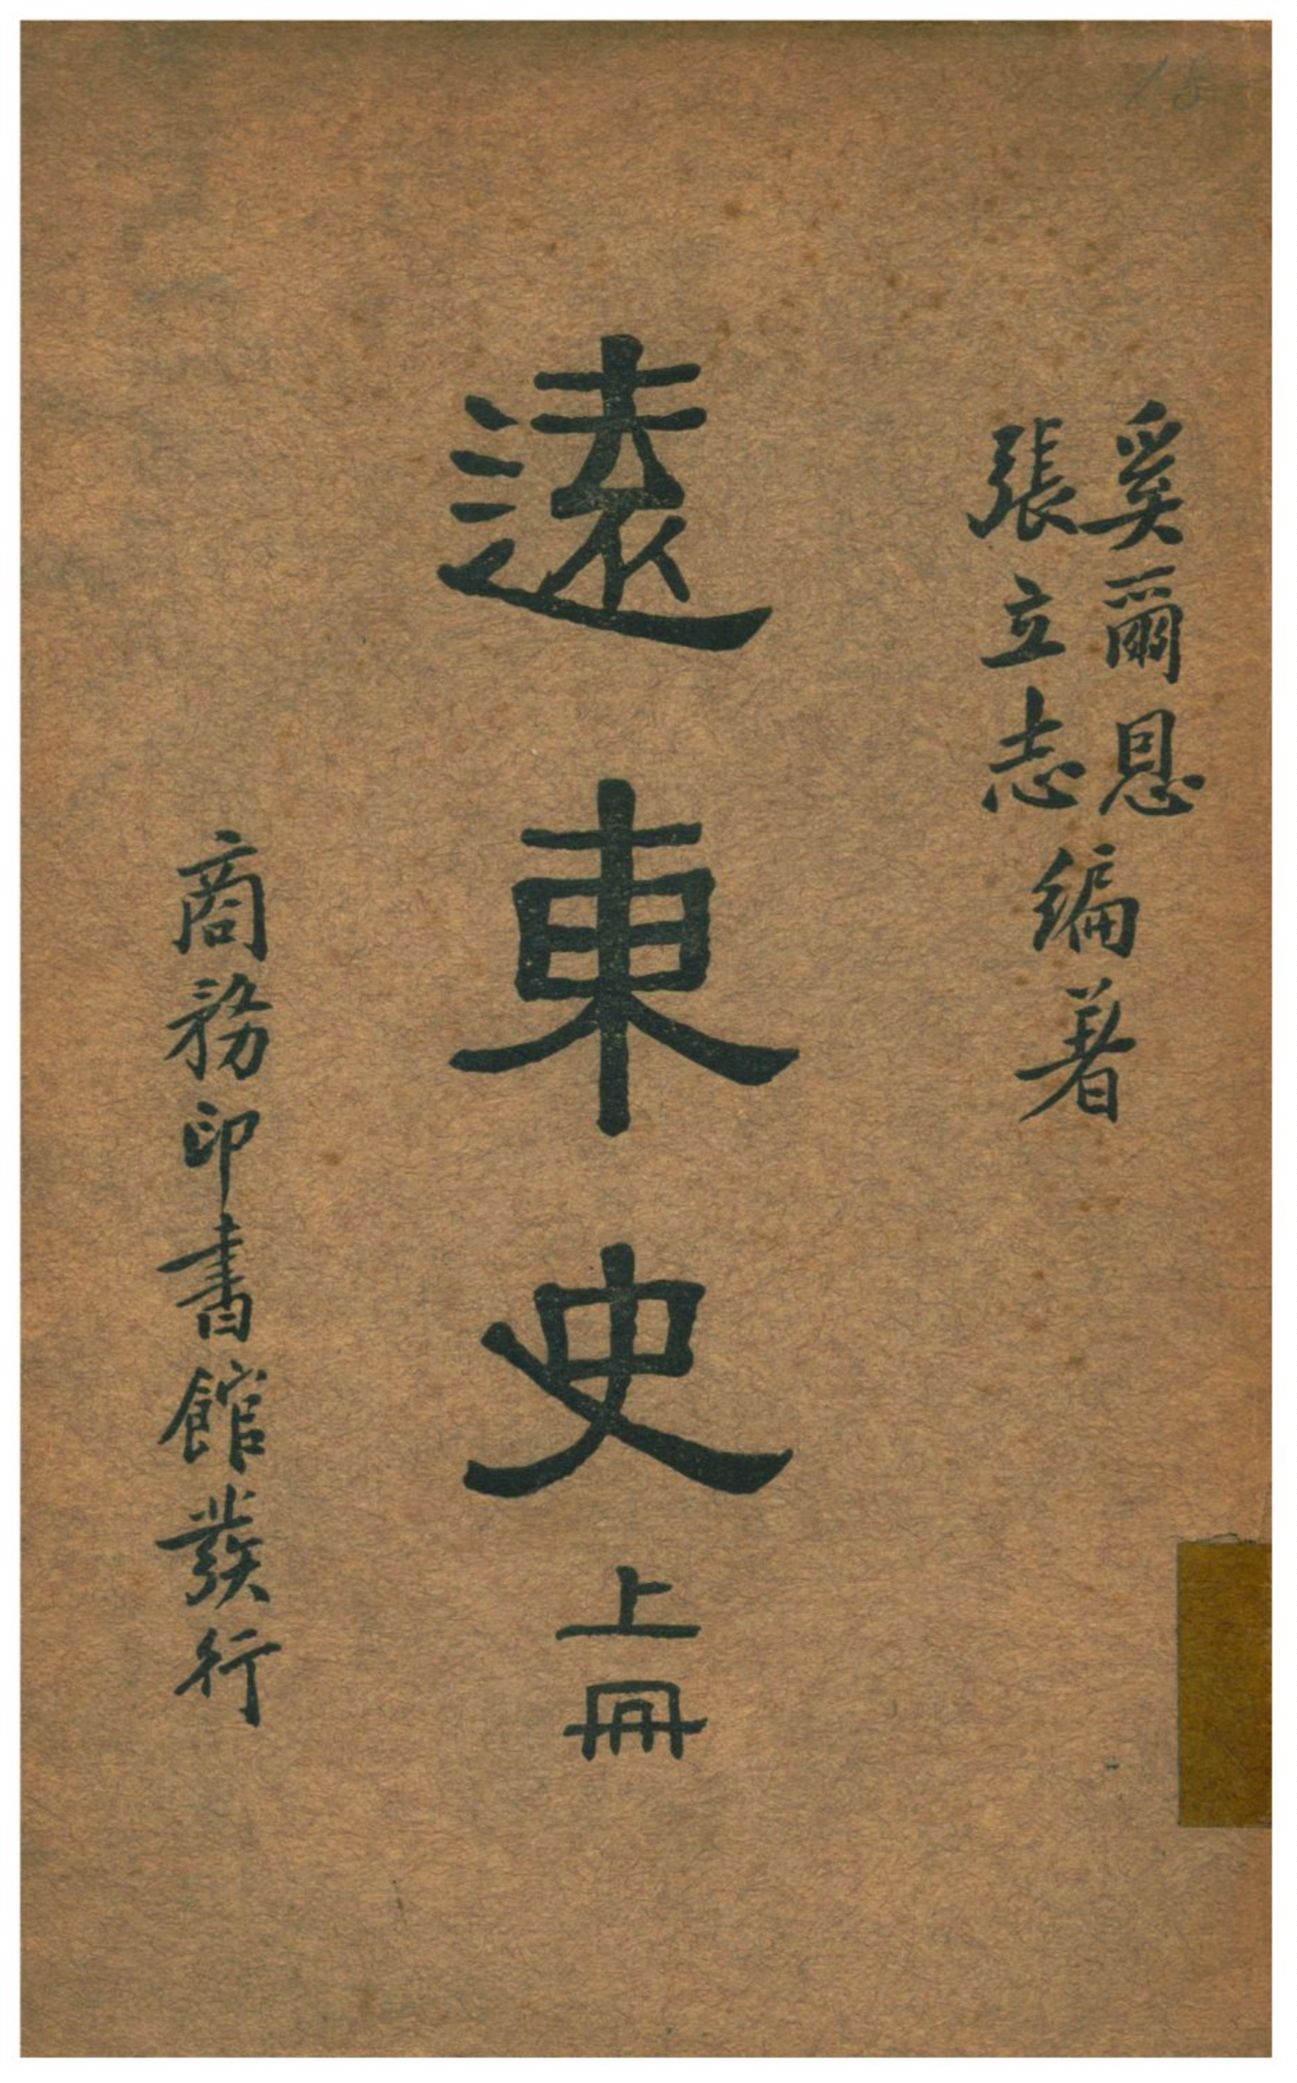 奚爾恩
張立志
編著
遠東史
上冊
商務印書館發行
18